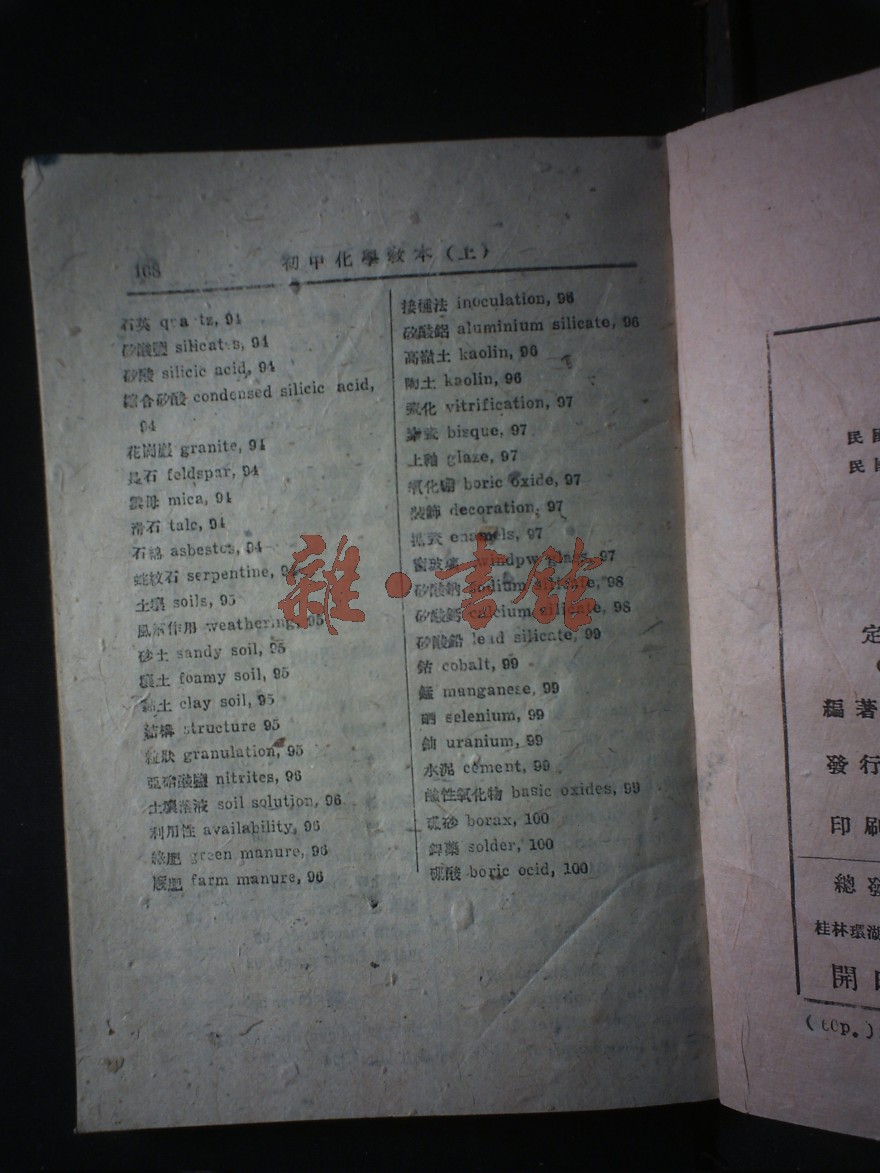 168
初中化學敎本（上）
石英 quartz, 94
矽酸鹽 silicates, 94
矽酸 silicic acid, 94
綜合矽酸 condensed silicic acid,
94
花崗巖 granite, 94
長石 feldspar, 94
雲母 mica, 94
滑石 talc, 94
石綿 asbestos, 94
蛇紋石 serpentine, 94
土壤 soils, 95
風解作用 weathering, 95
砂土 sandy soil, 95
壤土 foamy soil, 95
黏土 clay soil, 95
結構 structure 95
粒狀 granulation, 95
亞硝酸鹽 nitrites, 96
土壤溶液 soil solution, 96
利用性 availability, 96
綠肥 green manure, 96
廐肥 farm manure, 96
接種法 inoculation, 96
矽酸鋁 aluminium silicate, 96
高嶺土 kaolin, 96
陶土 kaolin, 96
vitrification, 97
bisque, 97
上釉 glaze, 97
氧化硼 boric oxide, 97
裝飾 decoration, 97
enamels, 97
窗玻璃 windpw glass, 97
矽酸鈉 sodium silicate, 98
矽酸鈣 calcium silicate, 98
矽酸鉛 lead silicate, 99
鈷 cobalt, 99
錳 manganese, 99
硒 selenium, 99
鈾 uranium, 99
水泥 cement, 99
鹼性氧化物 basic oxides, 99
硼砂 borax, 100
銲藥 solder, 100
硼酸 boric ocid, 100
雜·書館
民國
民國
定
編著
發行
印刷
總發
桂林環湖
開